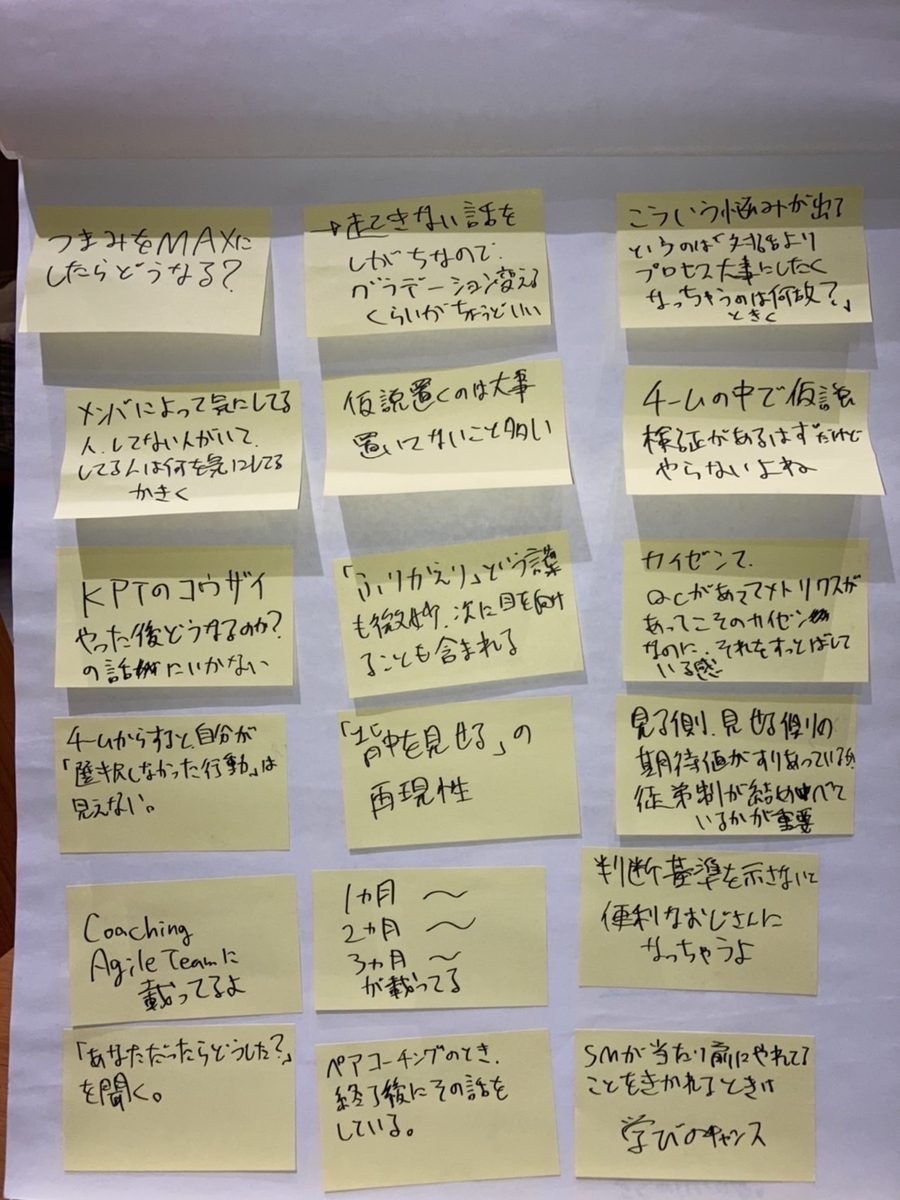 つまみをMAXに
したらどうなる?
→走てきない話を
しがちなので
グラデーション変える
くらいがちょうどいい
こういう悩みが出る
というのは「対話より
プロセス大事にしたく
なっちゃうのは何故?」
ときく
メンバによって気にしてる
人、してない人がいて、
してる人は何を気にしてる
かきく
仮説置くのは大事
置いてないこと多い
チームの中で仮説
検証があるはずだけど
やらないよね
KPTのコウザイ
やった後どうなるのか?
の話にいかない
「ふりかえり」という言葉
も微妙、次に目を向け
ることも含まれる
カイゼンて、
QCがあってメトリクスが
あってこそのカイゼン
なのに、それをすっとばして
いる感
チームからすると、自分が
「選択しなかった行動」は
見えない。
「背中を見せる」の
再現性
見る側、見せる側の
期待値がすりあっているか、
徒弟制が結べて
いるかが重要
Coaching
Agile Teamに
載ってるよ
1ヵ月 〜
2ヵ月 〜
3ヵ月 〜
が載ってる
判断基準を示さないと
便利なおじさんに
なっちゃうよ
「あなただったらどうした?」
を聞く。
ペアコーチングのとき、
終了後にその話を
している。
SMが当たり前にやれてる
ことをきかれるときは
学びのチャンス